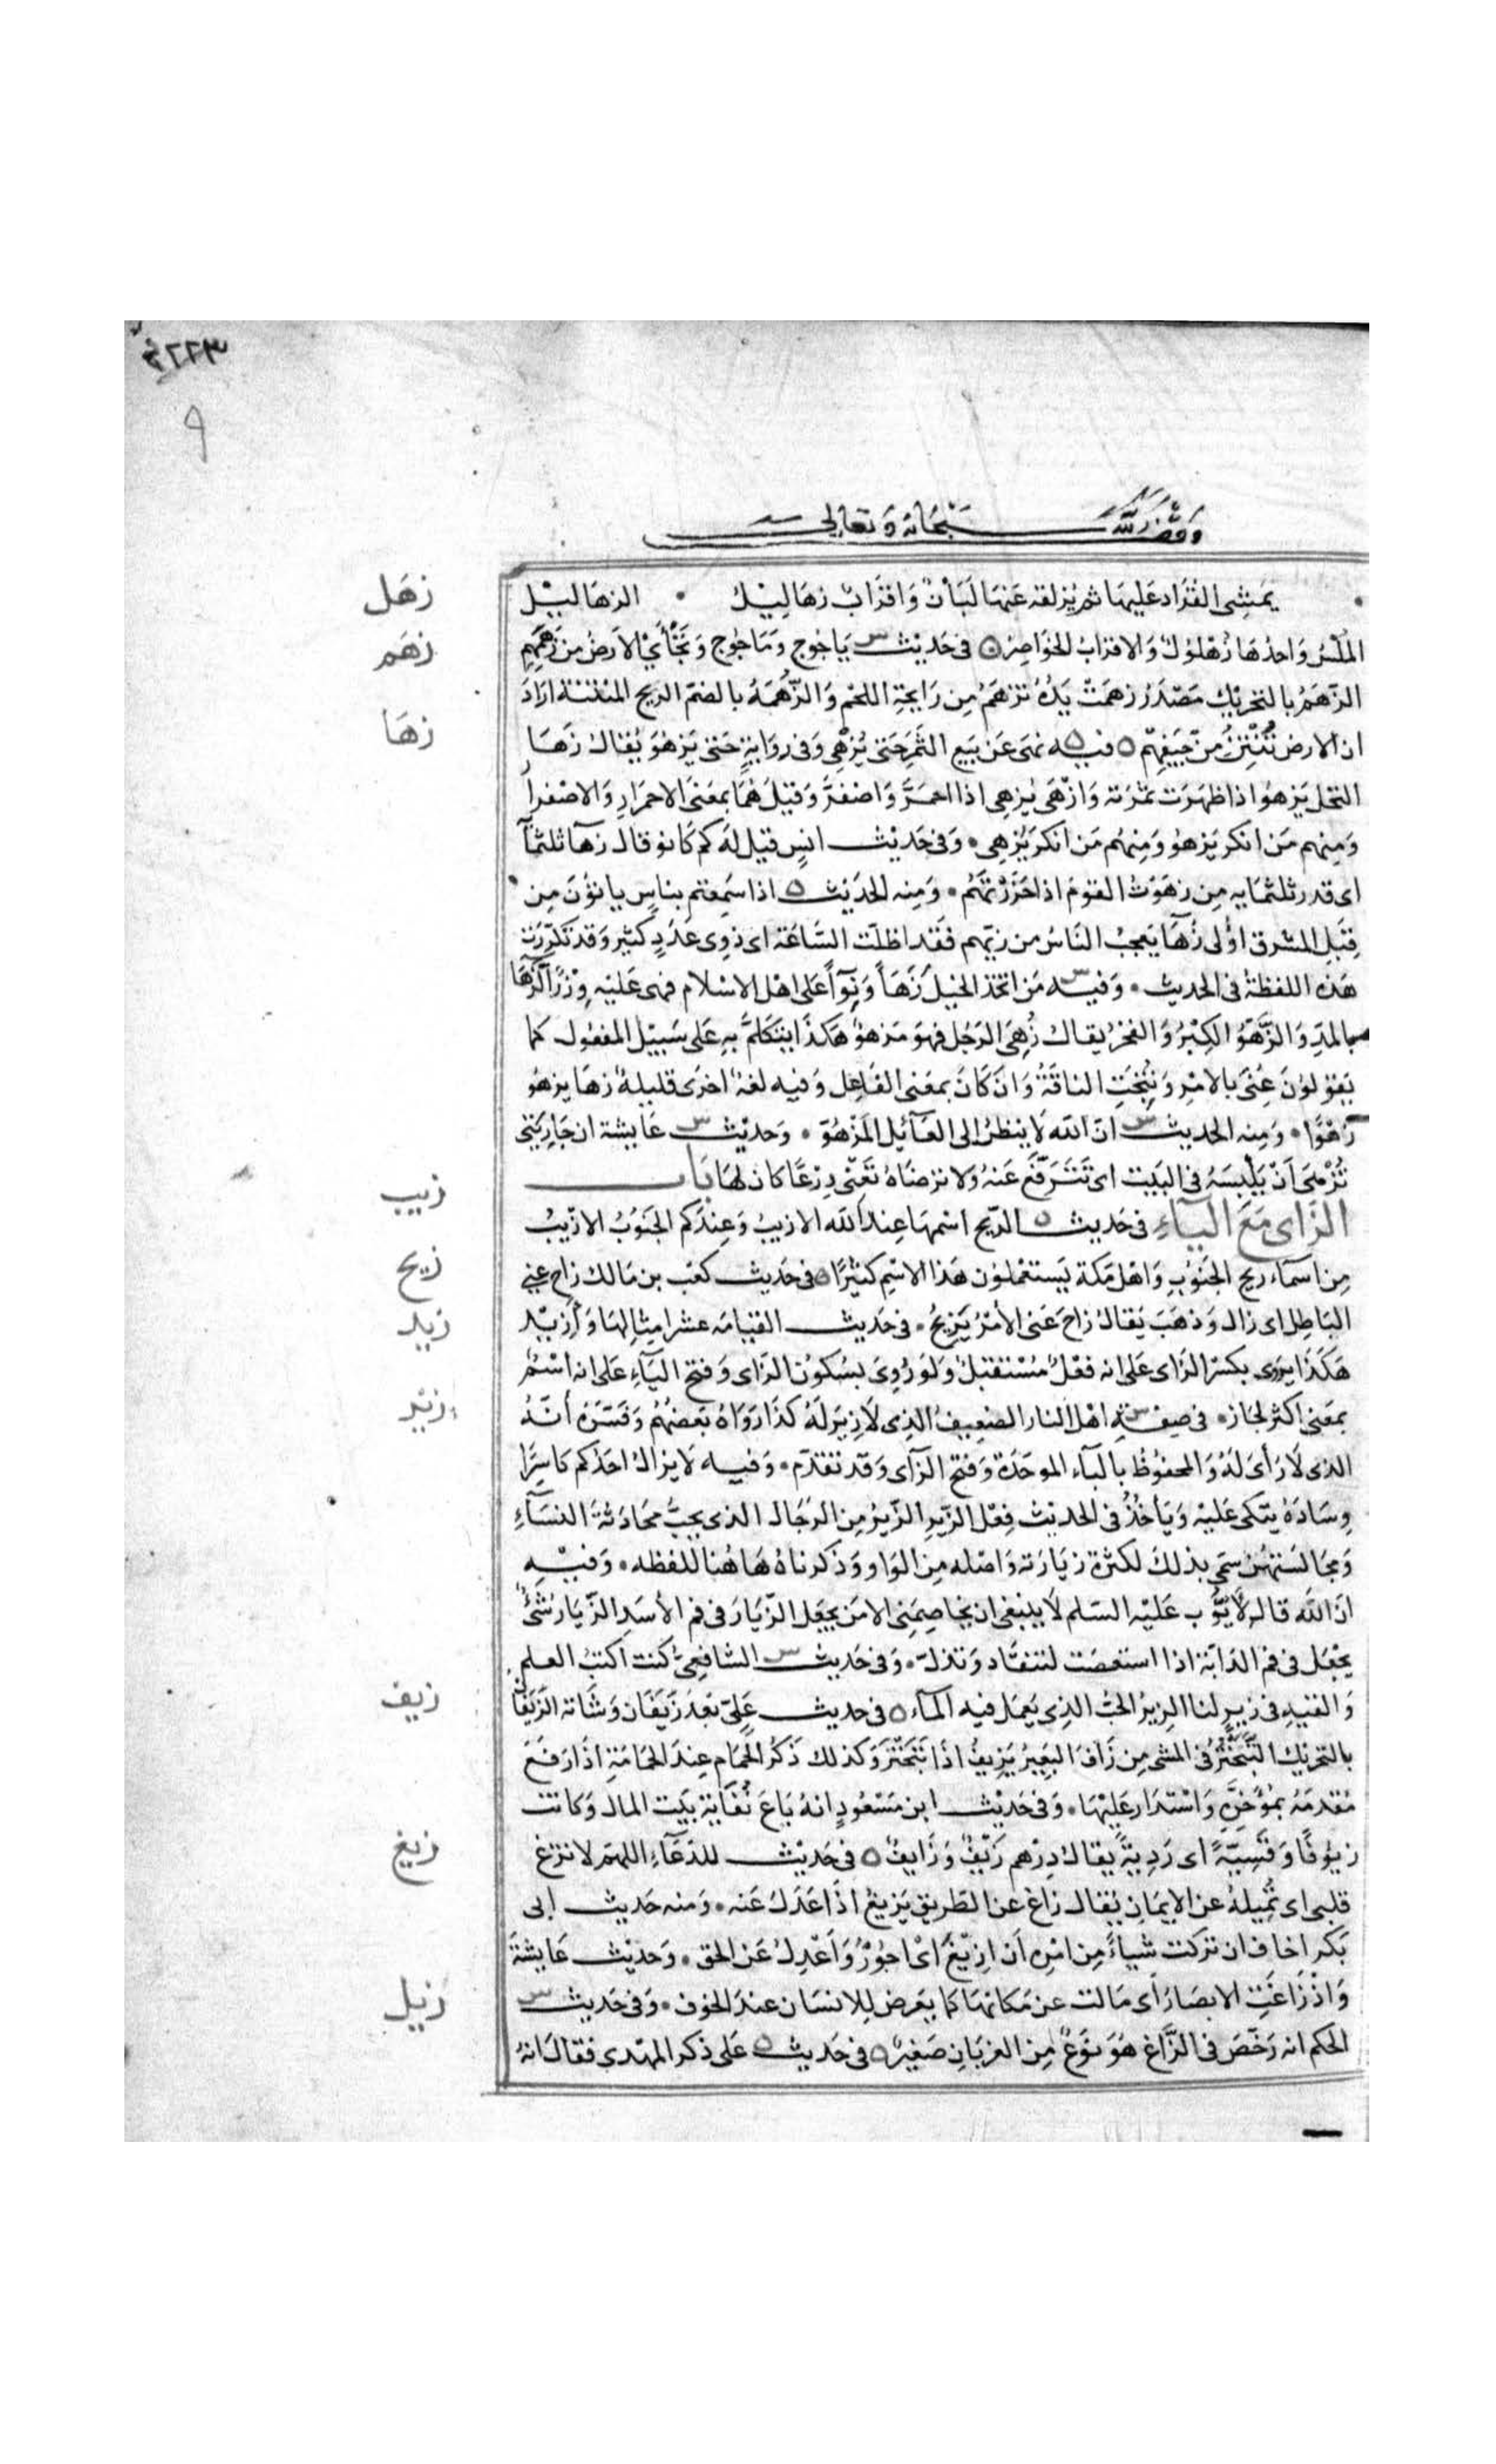 وقف لله سبحانه وتعالى
يَمشِى القُرَاد عَليهَا ثم يُزلقه عَنهَا لَبَانٌ وَاقرَابٌ زهَالِيْلُ • الزهَاليْل
زهَل
المُلْسُ وَاحدُهَا زُهْلوُلٌ وَالاقرَابُ الخَوَاصِرُ ۝ فى حَديْث س يَاجُوج وَمَاجُوج وَتَجْأَىْ الاَرضُ مِن زَهَمِهِم
زهَم
الزَّهَمُ بالتحرِيْكِ مَصْدَرُ زهمَتْ يَدُهُ تزهَمُ مِن رَايحَةِ اللحم وَالزُّهمَةُ بالضمّ الريح المنتنة ارَادَ
ان الارض تُنْتِنُ مِنْ جِيَفِهِمْ ۝ فيه نهَى عَن بَيعِ الثَّمَرِ حَتى يُزْهِى وَفى روَايةٍ حَتى يَزهُوَ يُقالُ زهَا
زهَا
النخل يَزهُوا اذا ظهَرَت ثمرَته وَازْهَى يُزهِى اذا احمَرَّ وَاصْفرَّ وَقيْلَ هُمَا بمعْنَى الاحمرَارِ وَالاصْفرا
وَمِنهم مَن انكر يَزهوُ وَمِنهُم مَن انكر يُزهِى • وَفى حَديْث انسٍ قيْلَ لَه كم كَانو قال زهَآ ثلثمآ
اى قدر ثلثمَايه مِن زهَوتُ القومَ اذا حَزَرْتَهُمْ • وَمِنه الحَديْث اذا سَمِعتم بناسٍ ياتوُنَ مِن
قِبَلِ المشرق اوُلى زُهَآ يَعجبُ النَاسُ من زيّهم فَقد اظلّت السَّاعَة اى ذوِى عَدَدٍ كثيْر وَقد تكرّرَت
هَذه اللفظةُ فى الحديث • وَفيه س مَن اتخَذ الخيْلَ زهَاءً وَنِوَآءً عَلى اهْل الاسْلام فهى عَليْه وِزْرٌ الزّهَا
بالمدِّ وَالزَّهْوُ الكِبْرُ وَالفَخْرُ يقال زُهِىَ الرَجُل فهوَ مَزهوٌّ هَكذَا يتَكَلمُ بِهِ عَلى سَبيْل المفعوُل كمَا
يَقوُلوُنَ عُنِىَ بالامْرِ وَنُتِجَتِ الناقةُ وَان كَانَ بمعَنى الفَاعِل وَفيه لغة اخرَى قليْلة زهَا يزهوُ
زهْوًا • وَمِنه الحديث س انّ الله لَا ينظرُ الى العَآئِلِ المَزْهُوِّ • وَحَديْث س عَايشة ان جَارِيَتى
تُزْهَى اَنْ تَلْبَسَهُ فى البَيت اى تَتَرَفّعَ عَنهُ وَلا ترضَاهُ تَعْنِى دِرْعًا كان لهَا بَابُ
الزَّاى مَعَ اليَآءِ فى حَديث الرّيح اسْمهَا عِند الله الازيبُ وَعِندَكم الجَنوُبُ الازيَبُ
زيب
مِن اسمَآء رِيح الجَنوُبِ وَاهْل مَكة يَستعْملوُن هَذا الاسْمَ كثيْرًا ۝ فى حَديث كَعْب بن مَالك زاح عنى
زيح
البَاطِل اى زال وَذهَبَ يقال زاحَ عَنى الأمْرُ يَزِيْحُ • فى حَديث القيَامَه عشر امثالِهَا وَأَزِيْد
زيد
هَكذَا يروى بكسْر الزَاى عَلى انه فعْلٌ مُسْتقبَلٌ وَلوَ رُوِىَ بسُكوُن الزَاى وَفتح اليَآءِ عَلى انه اسْمٌ
بمعَنى اكثر لجاز • فى صفةِ اهْل النار الضعِيفُ الذِى لَا زِيْرَ لَهُ كذَا رَوَاهُ بَعضُهُمْ وَفسَّرَهُ أنّهُ
زير
الذى لَا رَأىَ لَهُ وَالمحفوُظُ بالبآء الموحّدَة وَفتح الزآى وَقد تقدّم • وَفيه لَا يزالُ احَدُكم كَاسِرًا
وِسَادَهُ يتّكى عَليْه وَيَأخُذُ فى الحديْث فِعْل الزِّيرِ الزّيرُ مِن الرَجَال الذى يحبُّ محَادَثةَ النسَآءِ
وَمجَالسَتهُنّ سمّى بذلكَ لكثرة زيَارَته وَاصْله مِن الوَاو وَذكرناهُ هَاهُنا للفظه • وَفيْه
انّ الله قال لأَيُّوب عَليْه السَلم لَا يَنبغى ان يخَاصِمَنى الا مَن يجعَل الزّيَارَ فى فم الأسَدِ الزّيَار شئٌ
يجْعَل فى فم الدابّة اذا استصعَبت لتنقَاد وَتذلّ • وَفى حَديث س الشافعىّ كنت اكتبُ العلم
وَالقيهِ فى زِيرٍ لنا الزيْرُ الحُبّ الذِى يَعمَل فيه المآء ۝ فى حديث عَلِىّ بَعْدَ زَيَفَان وَثَباته الزَيَفَانُ
زيف
بالتحرِيْك التَّبَخْتُرُ فى المشى مِن زَافَ البَعِيْرُ يَزِيفُ اذَا تَبَخْتَرَ وَكذلك ذَكرُ الحَمَام عِندَ الحمَامَةِ اذَا رَفَعَ
مُقدّمَهُ بمُؤخّرِه وَاسْتدَار عَليْهَا • وَفى حَديْث ابن مَسْعوُدٍ انهُ بَاعَ نُفَايَةَ بيَت المال وَكانت
زيوُفًا وَقَسِيّةً اى رَدِيةً يقال دِرْهم زَيْفٌ وَزَايفٌ ۝ فى حَديْث الدّعَآءِ اللهمّ لَا تزغ
زيغ
قلبى اى تُمِيلهُ عن الايمَانِ يُقال زاغ عن الطَريق يَزيغُ اذا عَدَلَ عَنه • وَمنه حَديث ابى
بَكر اخَاف ان تركت شياءً مِن امْرِه اَن ازِيْغَ اىْ اجُوْرُ وَأعْدِلُ عَن الحَق • وَحَديْث عَايشةَ
وَاذْ زَاغَتِ الابصَار اَى مَالت عن مَكانهَا كمَا يَعرض لِلانسَان عندَ الخوف • وَفى حَديث س
الحَكم انه رَخَّصَ فى الزَّاغ هُوَ نوَعٌ مِن الغربَانِ صَغيْرٌ ۝ فى حَديث عَلى ذكر المهْدى فقال انهُ
زيل